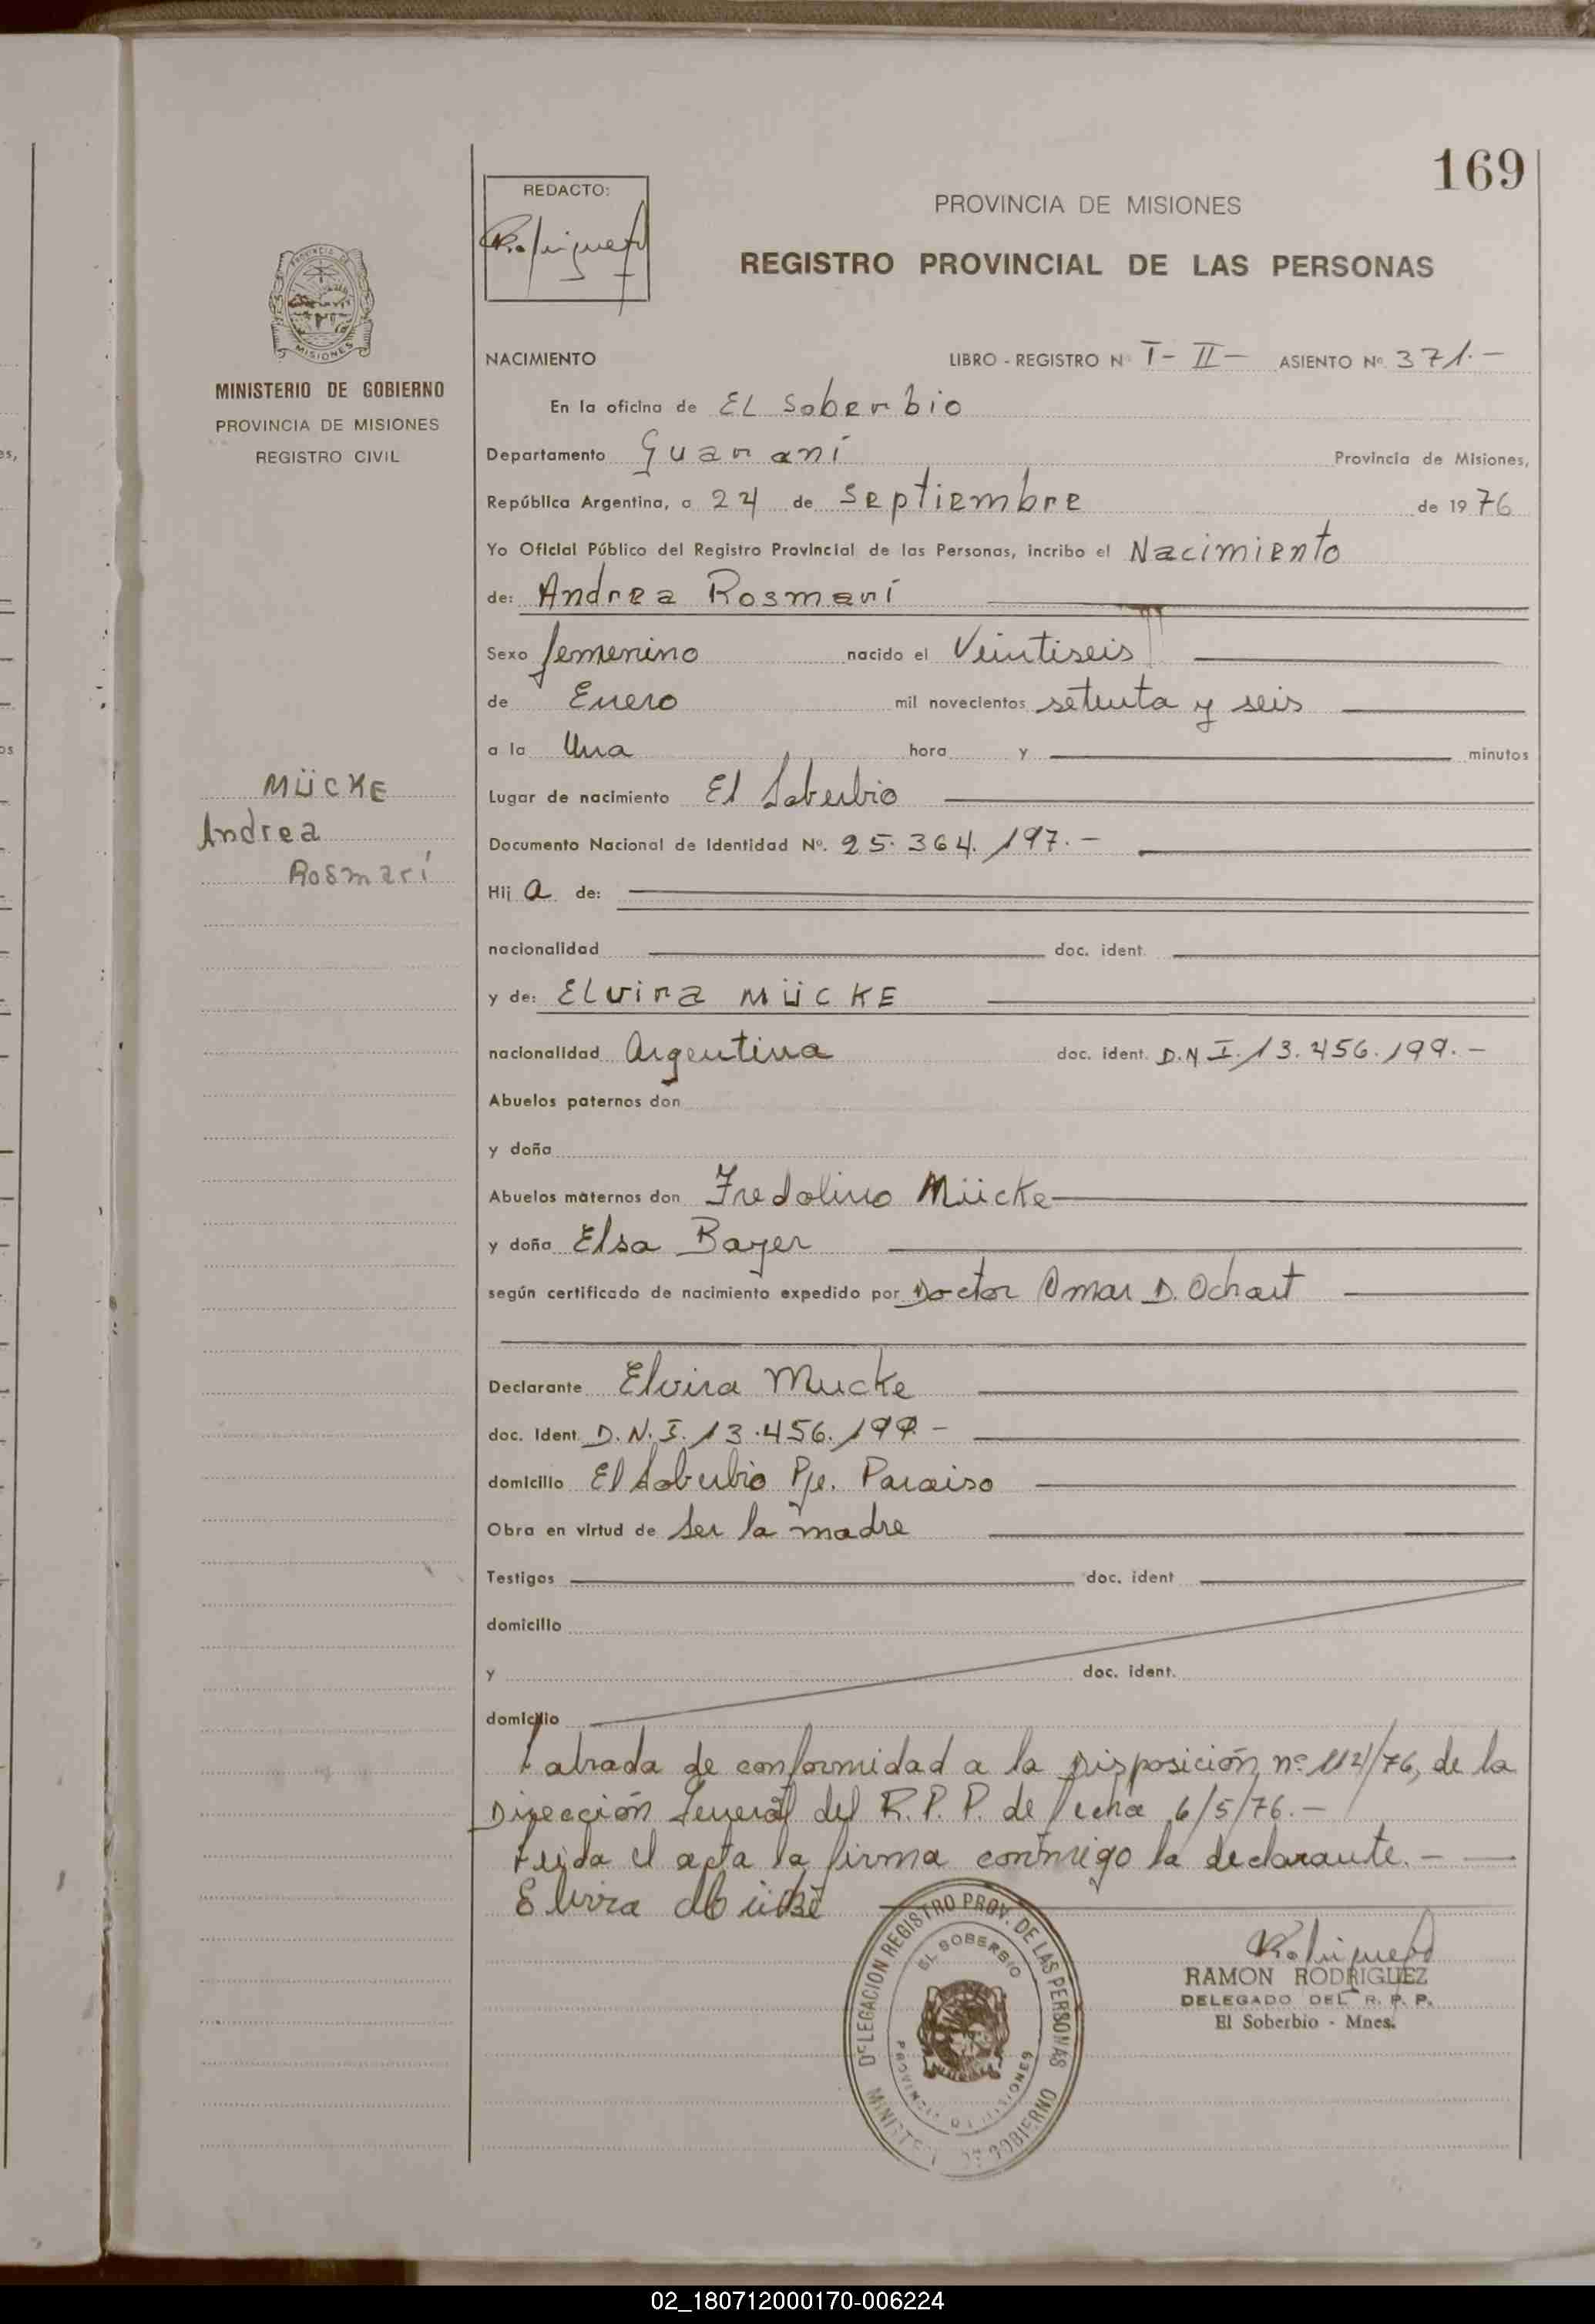 169
REDACTO:
PROVINCIA DE MISIONES
REGISTRO PROVINCIAL DE LAS PERSONAS
MISIONES
MINISTERIO DE GOBIERNO
PROVINCIA DE MISIONES
REGISTRO CIVIL
NACIMIENTO LIBRO - REGISTRO Nº I - II - ASIENTO Nº 371.-
En la oficina de EL Soberbio
Departamento Guaraní Provincia de Misiones,
República Argentina, a 24 de Septiembre de 1976
Yo Oficial Público del Registro Provincial de las Personas, incribo el Nacimiento
de: Andrea Rosmarí
Sexo femenino nacido el Veintiseis
de Enero mil novecientos setenta y seis
a la Una hora y minutos
MÜCKE
Andrea
Rosmarí
Lugar de nacimiento El Soberbio
Documento Nacional de Identidad Nº. 25.364.197.-
Hij a de:
nacionalidad doc. ident.
y de: ELvira MÜCKE
nacionalidad Argentina doc. ident. D.N.I. 13.456.199.-
Abuelos paternos don
y doña
Abuelos maternos don Fredolino Mücke
y doña Elsa Bayer
según certificado de nacimiento expedido por Doctor Omar D. Ochart
Declarante Elvira Mucke
doc. Ident. D.N.I. 13.456.199.-
domicilio El Soberbio Pje. Paraiso
Obra en virtud de Ser la madre
Testigos doc. ident
domicilio
y doc. ident.
domicilio
Labrada de conformidad a la Disposición nº 112/76, de la
Dirección General del R.P.P. de fecha 6/5/76.-
Leida el acta la firma conmigo la declarante.-
Elvira
DELEGACION REGISTRO PROV. DE LAS PERSONAS
EL SOBERBIO
PROVINCIA DE MISIONES
MINISTERIO DE GOBIERNO
RAMON RODRIGUEZ
DELEGADO DEL R. P. P.
El Soberbio - Mnes.
02_180712000170-006224